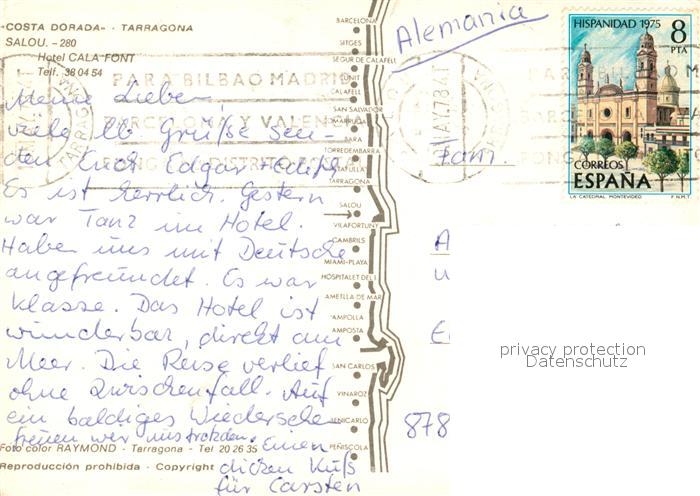 «COSTA DORADA» - TARRAGONA
SALOU. - 280
Hotel CALA FONT
Telf. 38 04 54
Meine Lieben,
viele lb Grüße sen-
den Euch Edgar +
Es ist herrlich. Gestern
war Tanz im Hotel.
Haben uns mit Deutsche
angefreundet. Es war
Klasse. Das Hotel ist
wunderbar, direkt am
Meer. Die Reise verlief
ohne Zwischenfall. Auf
ein baldiges Wiedersehen
freuen wir uns trotzdem. einen
dicken Kuß
für Carsten
Foto color RAYMOND - Tarragona - Tel 20 26 35
Reproducción prohibida - Copyright
BARCELONA
SITGES
SEGUR DE CALAFELL
CUNIT
CALAFELL
SAN SALVADOR
COMARRUGA
BARA
TORREDEMBARRA
ALTAFULLA
TARRAGONA
SALOU
VILAFORTUNY
CAMBRILS
MIAMI-PLAYA
HOSPITALET DEL I.
AMETLLA DE MAR
AMPOLLA
AMPOSTA
SAN CARLOS
VINAROZ
BENICARLO
PEÑISCOLA
PARA BILBAO MADRID
BARCELONA Y VALENCIA
PONGA DISTRITO POSTAL
Alemania
Fam.
878
HISPANIDAD 1975
8
PTA
CORREOS
ESPAÑA
LA CATEDRAL MONTEVIDEO
F.N.M.T.
privacy protection
Datenschutz